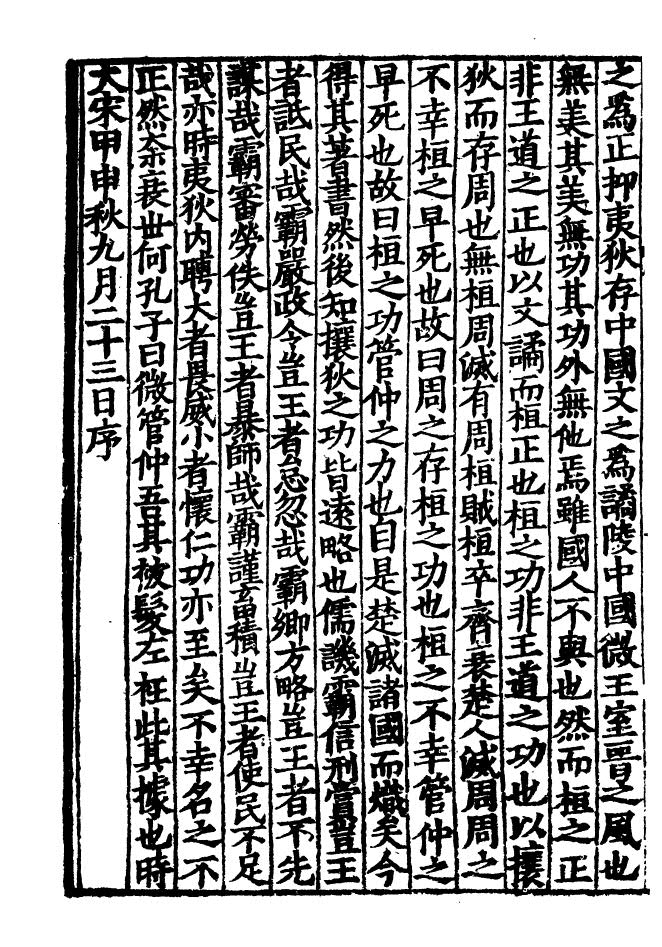 之爲正抑夷狄存中國文之爲譎陵中國微王室晉之風也
無美其美無功其功外無他焉雖國人不與也然而桓之正
非王道之正也以文譎而桓正也桓之功非王道之功也以攘
狄而存周也無桓周滅有周桓賊桓卒齊衰楚人滅周周之
不幸桓之早死也故曰周之存桓之功也桓之不幸管仲之
早死也故曰桓之功管仲之力也曰是楚滅諸國而熾矣今
得其著書然後知攘狄之功皆遠略也儒譏霸信刑賞豈王
者詆民哉霸嚴政令豈王者怠忽哉霸鄉方略豈王者不先
謀哉霸審勞佚豈王者暴師哉霸謹畜積豈王者使民不足
哉亦時夷狄內騁大者畏威小者懷仁功亦至矣不幸名之不
正然奈衰世何孔子曰微管仲吾其被髮左衽此其據也時
大宋甲申秋九月二十三日序